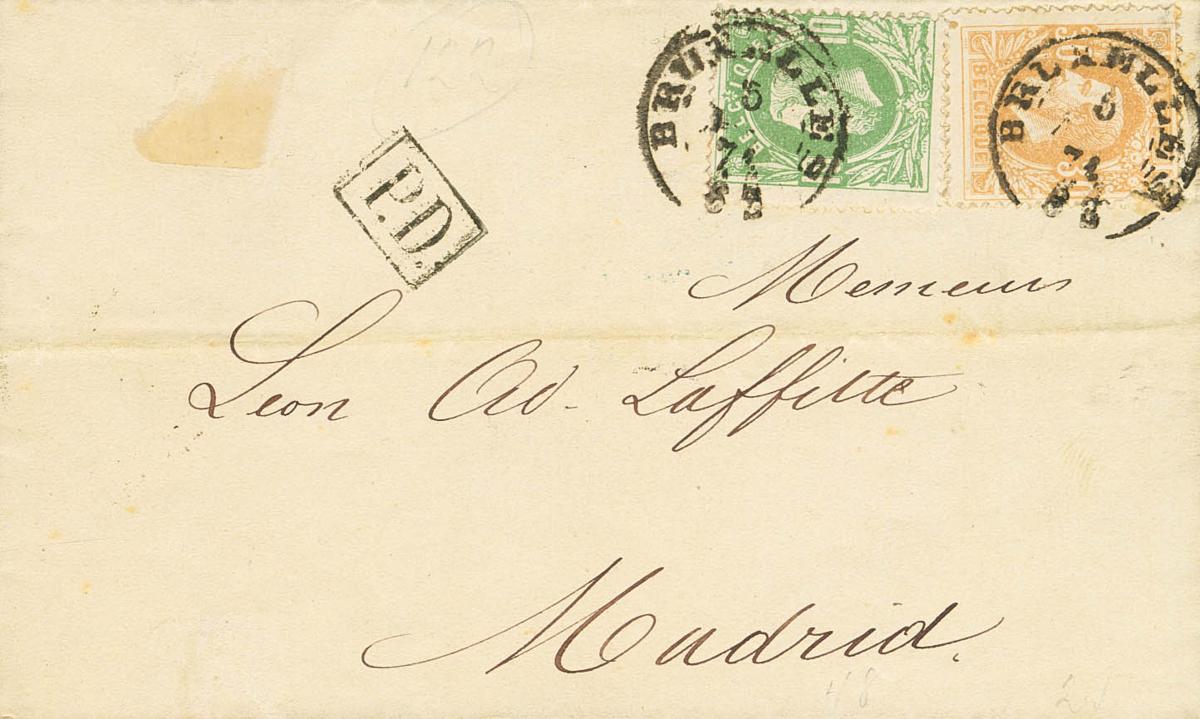 BRUXELLES
BRUXELLES
10
BELGIQUE
BELGIQUE
P.D.
Messieurs
Leon Ad. Laffitte
Madrid.